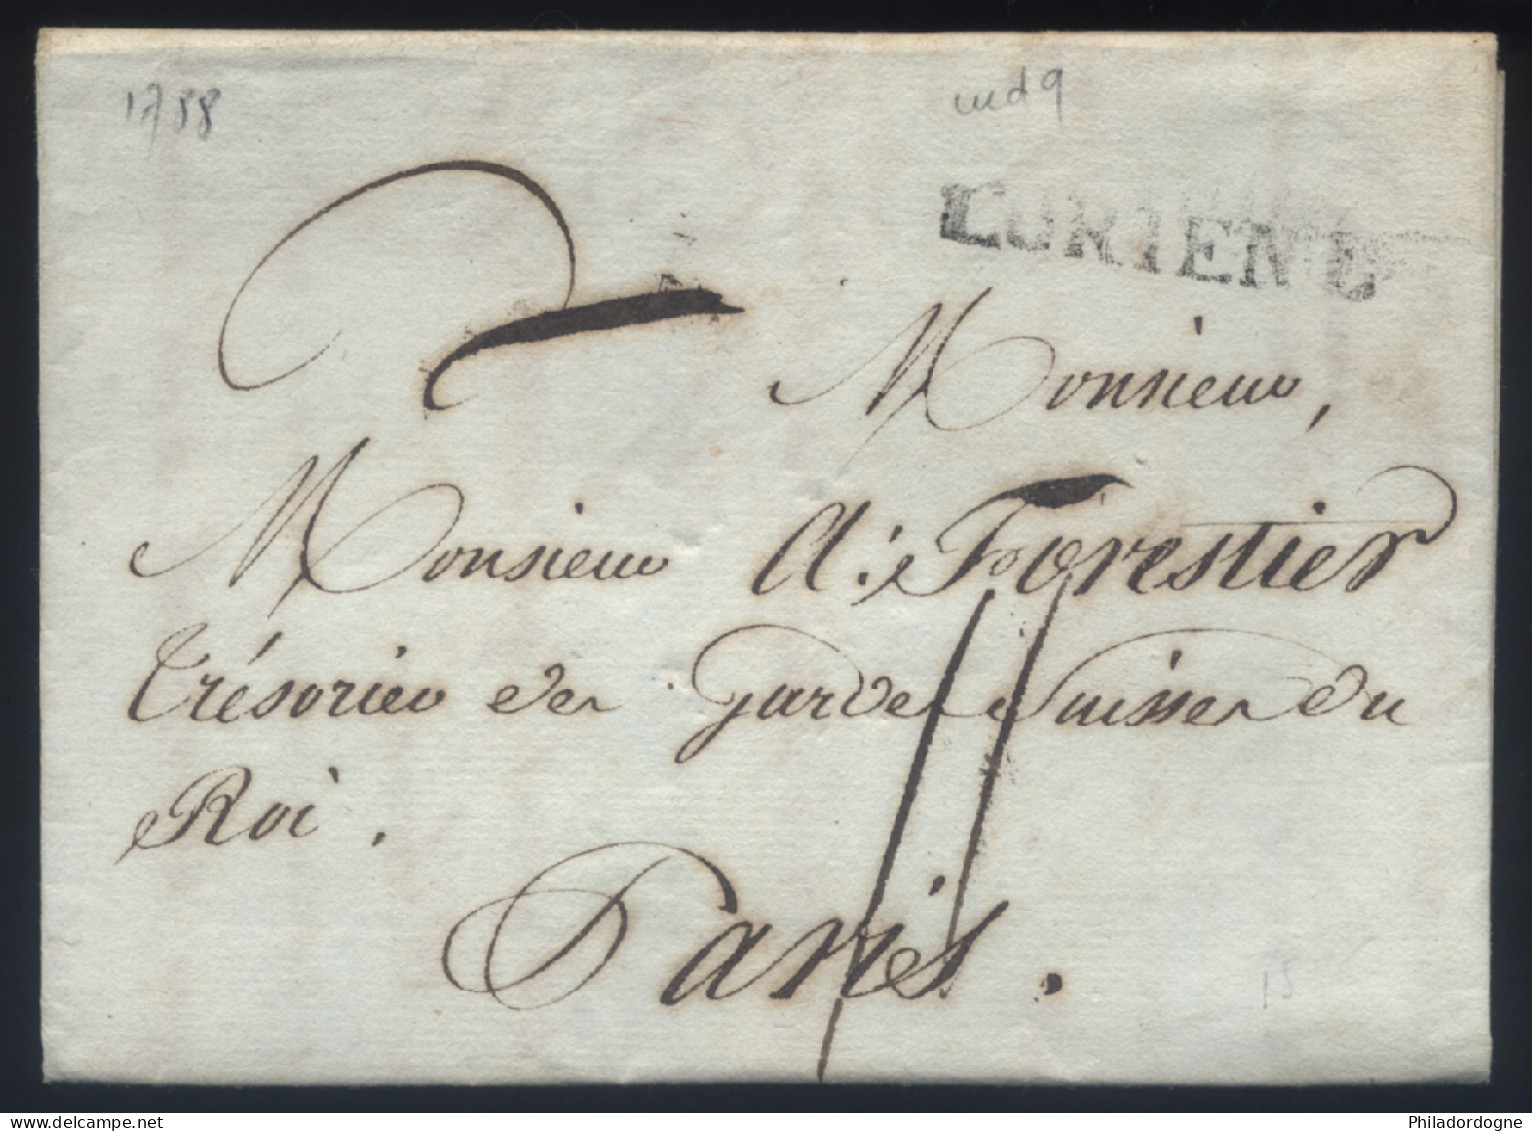 1788
ind 9
LORIENT
Monsieur,
Monsieur A: Forestier
Trésorier des Gardes Suisses du
Roi.
Paris.
11
15
Philadordogne